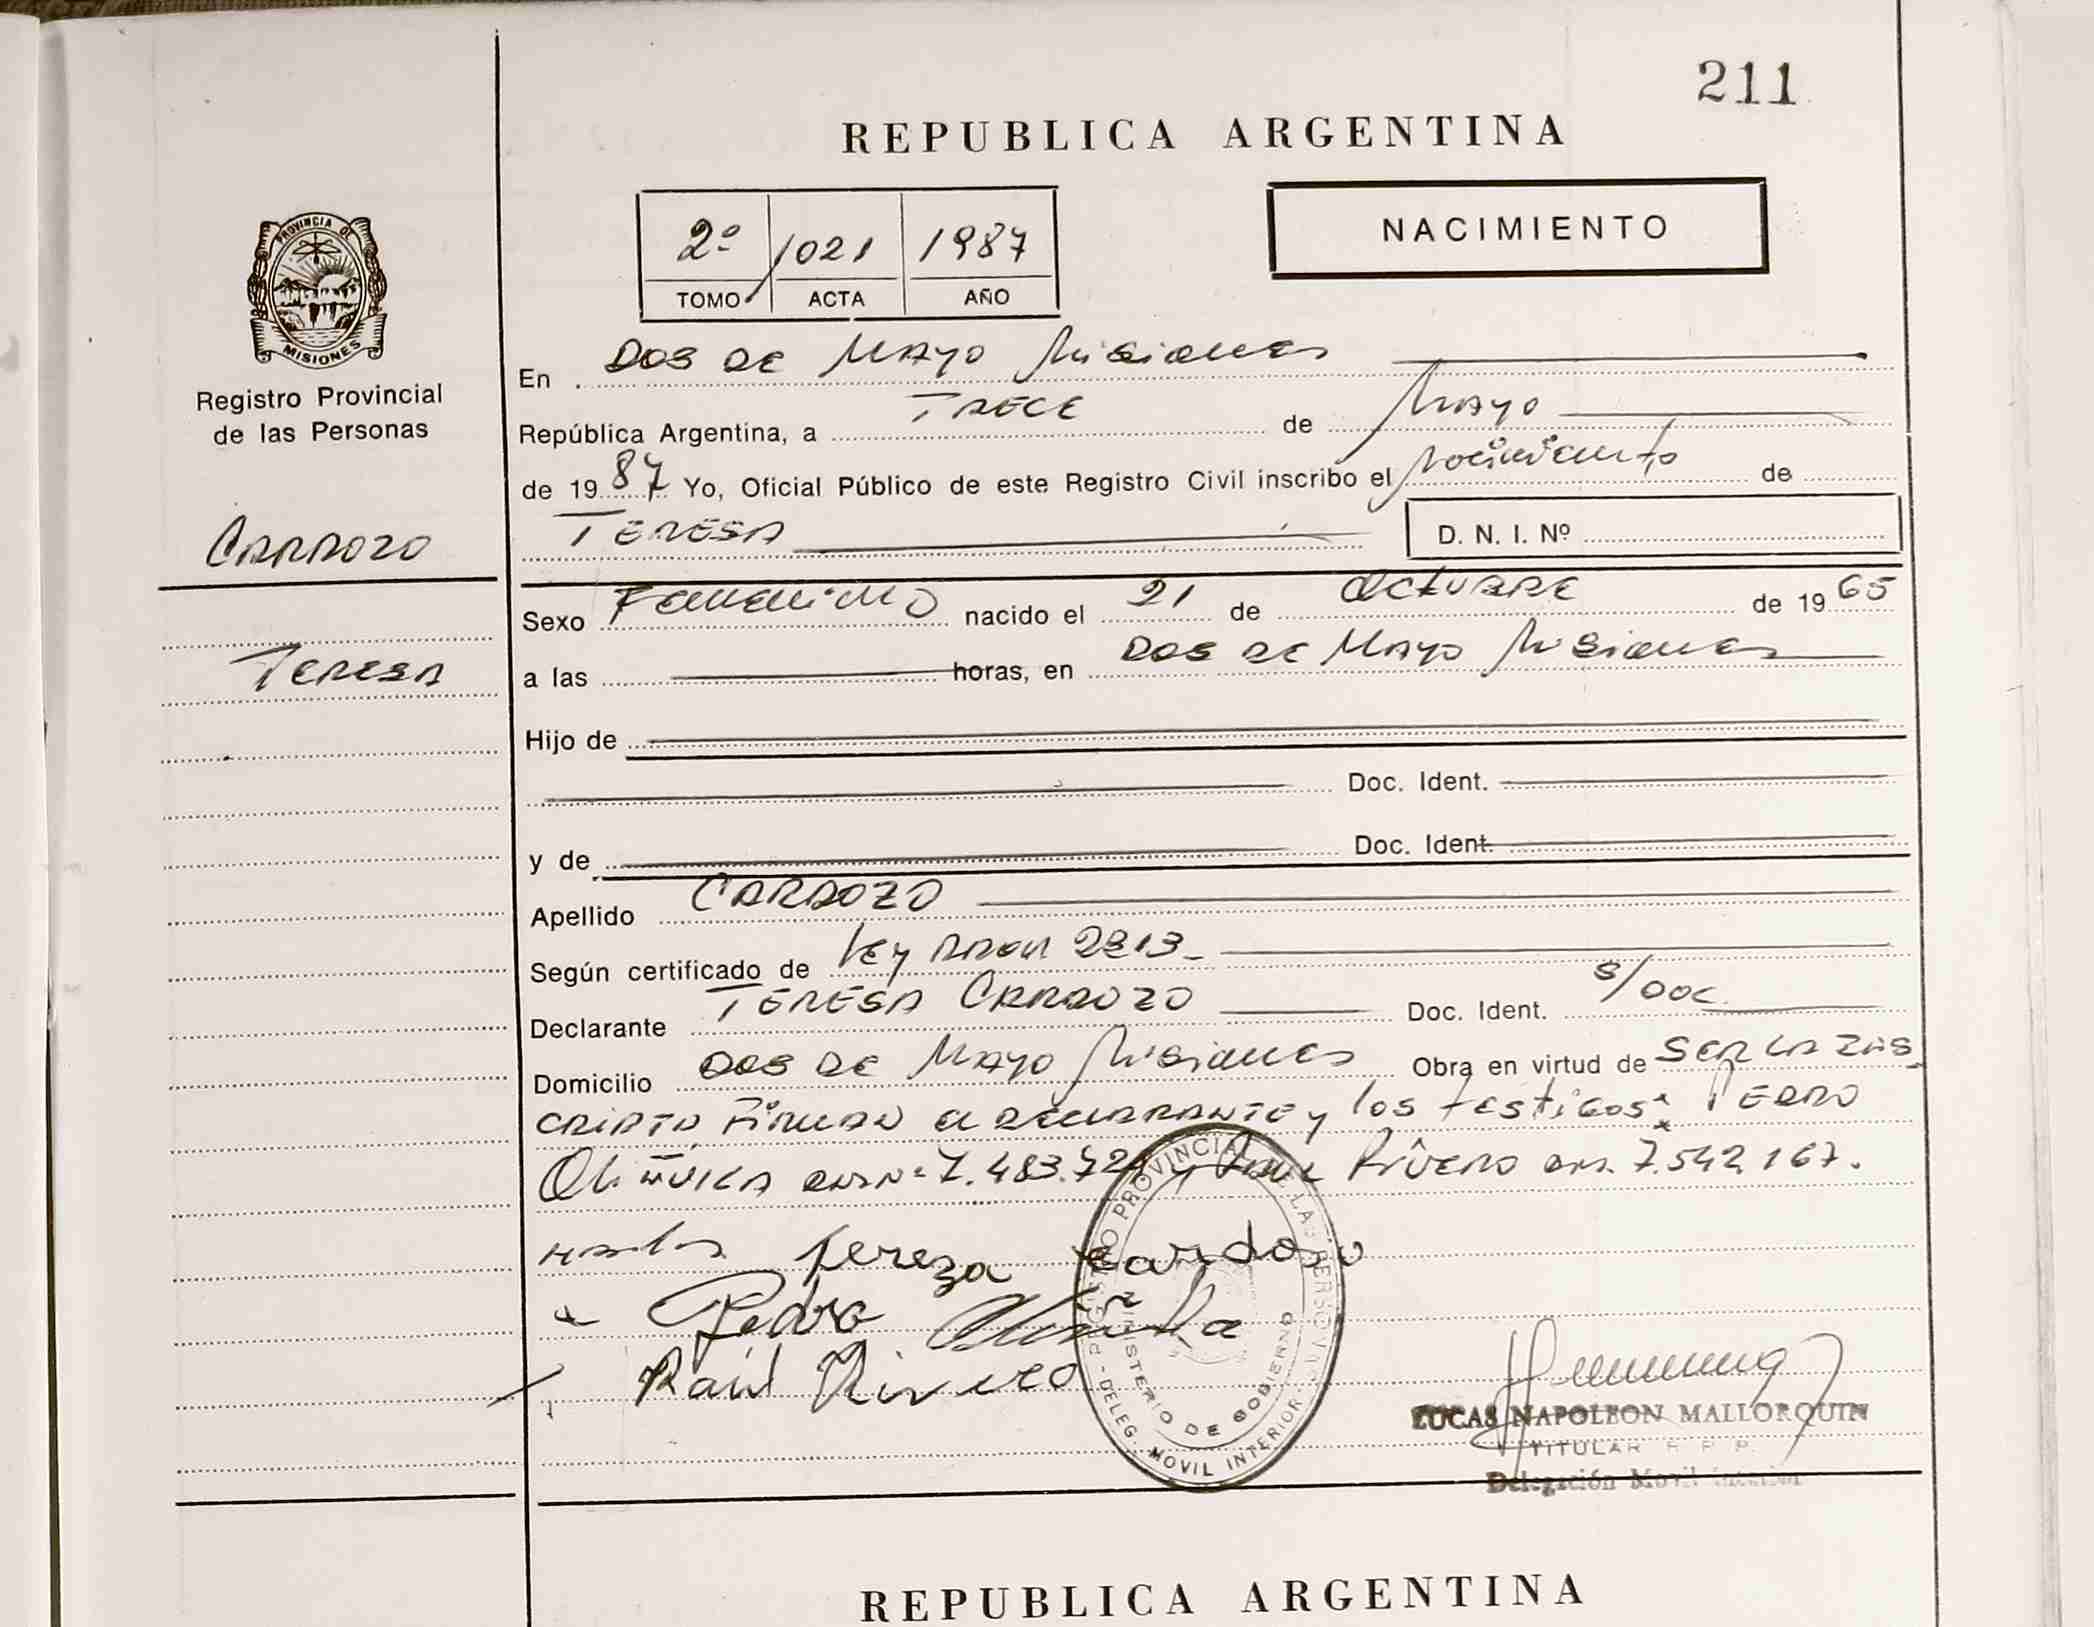 211
REPUBLICA ARGENTINA
2º 1021 1987
TOMO ACTA AÑO
NACIMIENTO
PROVINCIA DE MISIONES
Registro Provincial
de las Personas
CARDOZO
TERESA
En DOS DE MAYO Misiones
República Argentina, a TRECE de MAYO
de 1987 Yo, Oficial Público de este Registro Civil inscribo el nacimiento de
TERESA D. N. I. Nº
Sexo Femenino nacido el 21 de OCTUBRE de 1965
a las horas, en DOS DE MAYO Misiones
Hijo de
Doc. Ident.
y de Doc. Ident.
Apellido CARDOZO
Según certificado de Ley 2213
Declarante TERESA CARDOZO Doc. Ident. S/DOC
Domicilio DOS DE MAYO Misiones Obra en virtud de SER LA INS
CRIPTA FIRMAN el DECLARANTE y los testigos: PEDRO
7.483.72 y Rivero 7.542.167.
Tereza Cardozo
Pedro
Raúl Rivero
REGISTRO PROVINCIAL DE LAS PERSONAS - DELEG. MOVIL INTERIOR -
MINISTERIO DE GOBIERNO
LUCAS NAPOLEON MALLORQUIN
TITULAR R. P. P.
Delegación Movil Interior
REPUBLICA ARGENTINA